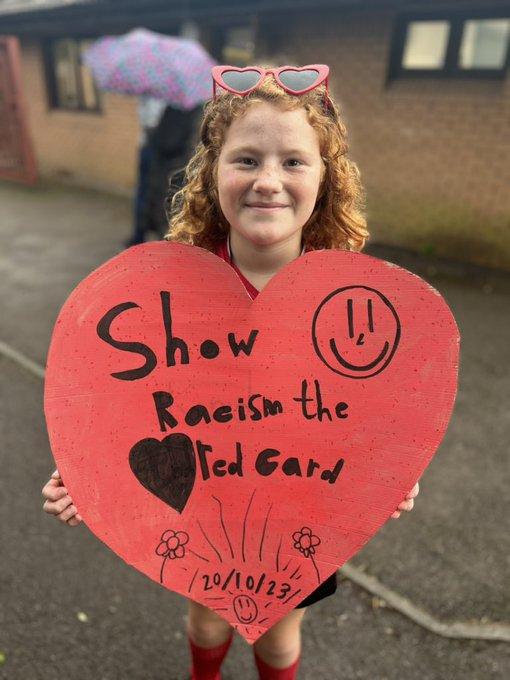 Show
Racism the
red Card
20/10/23